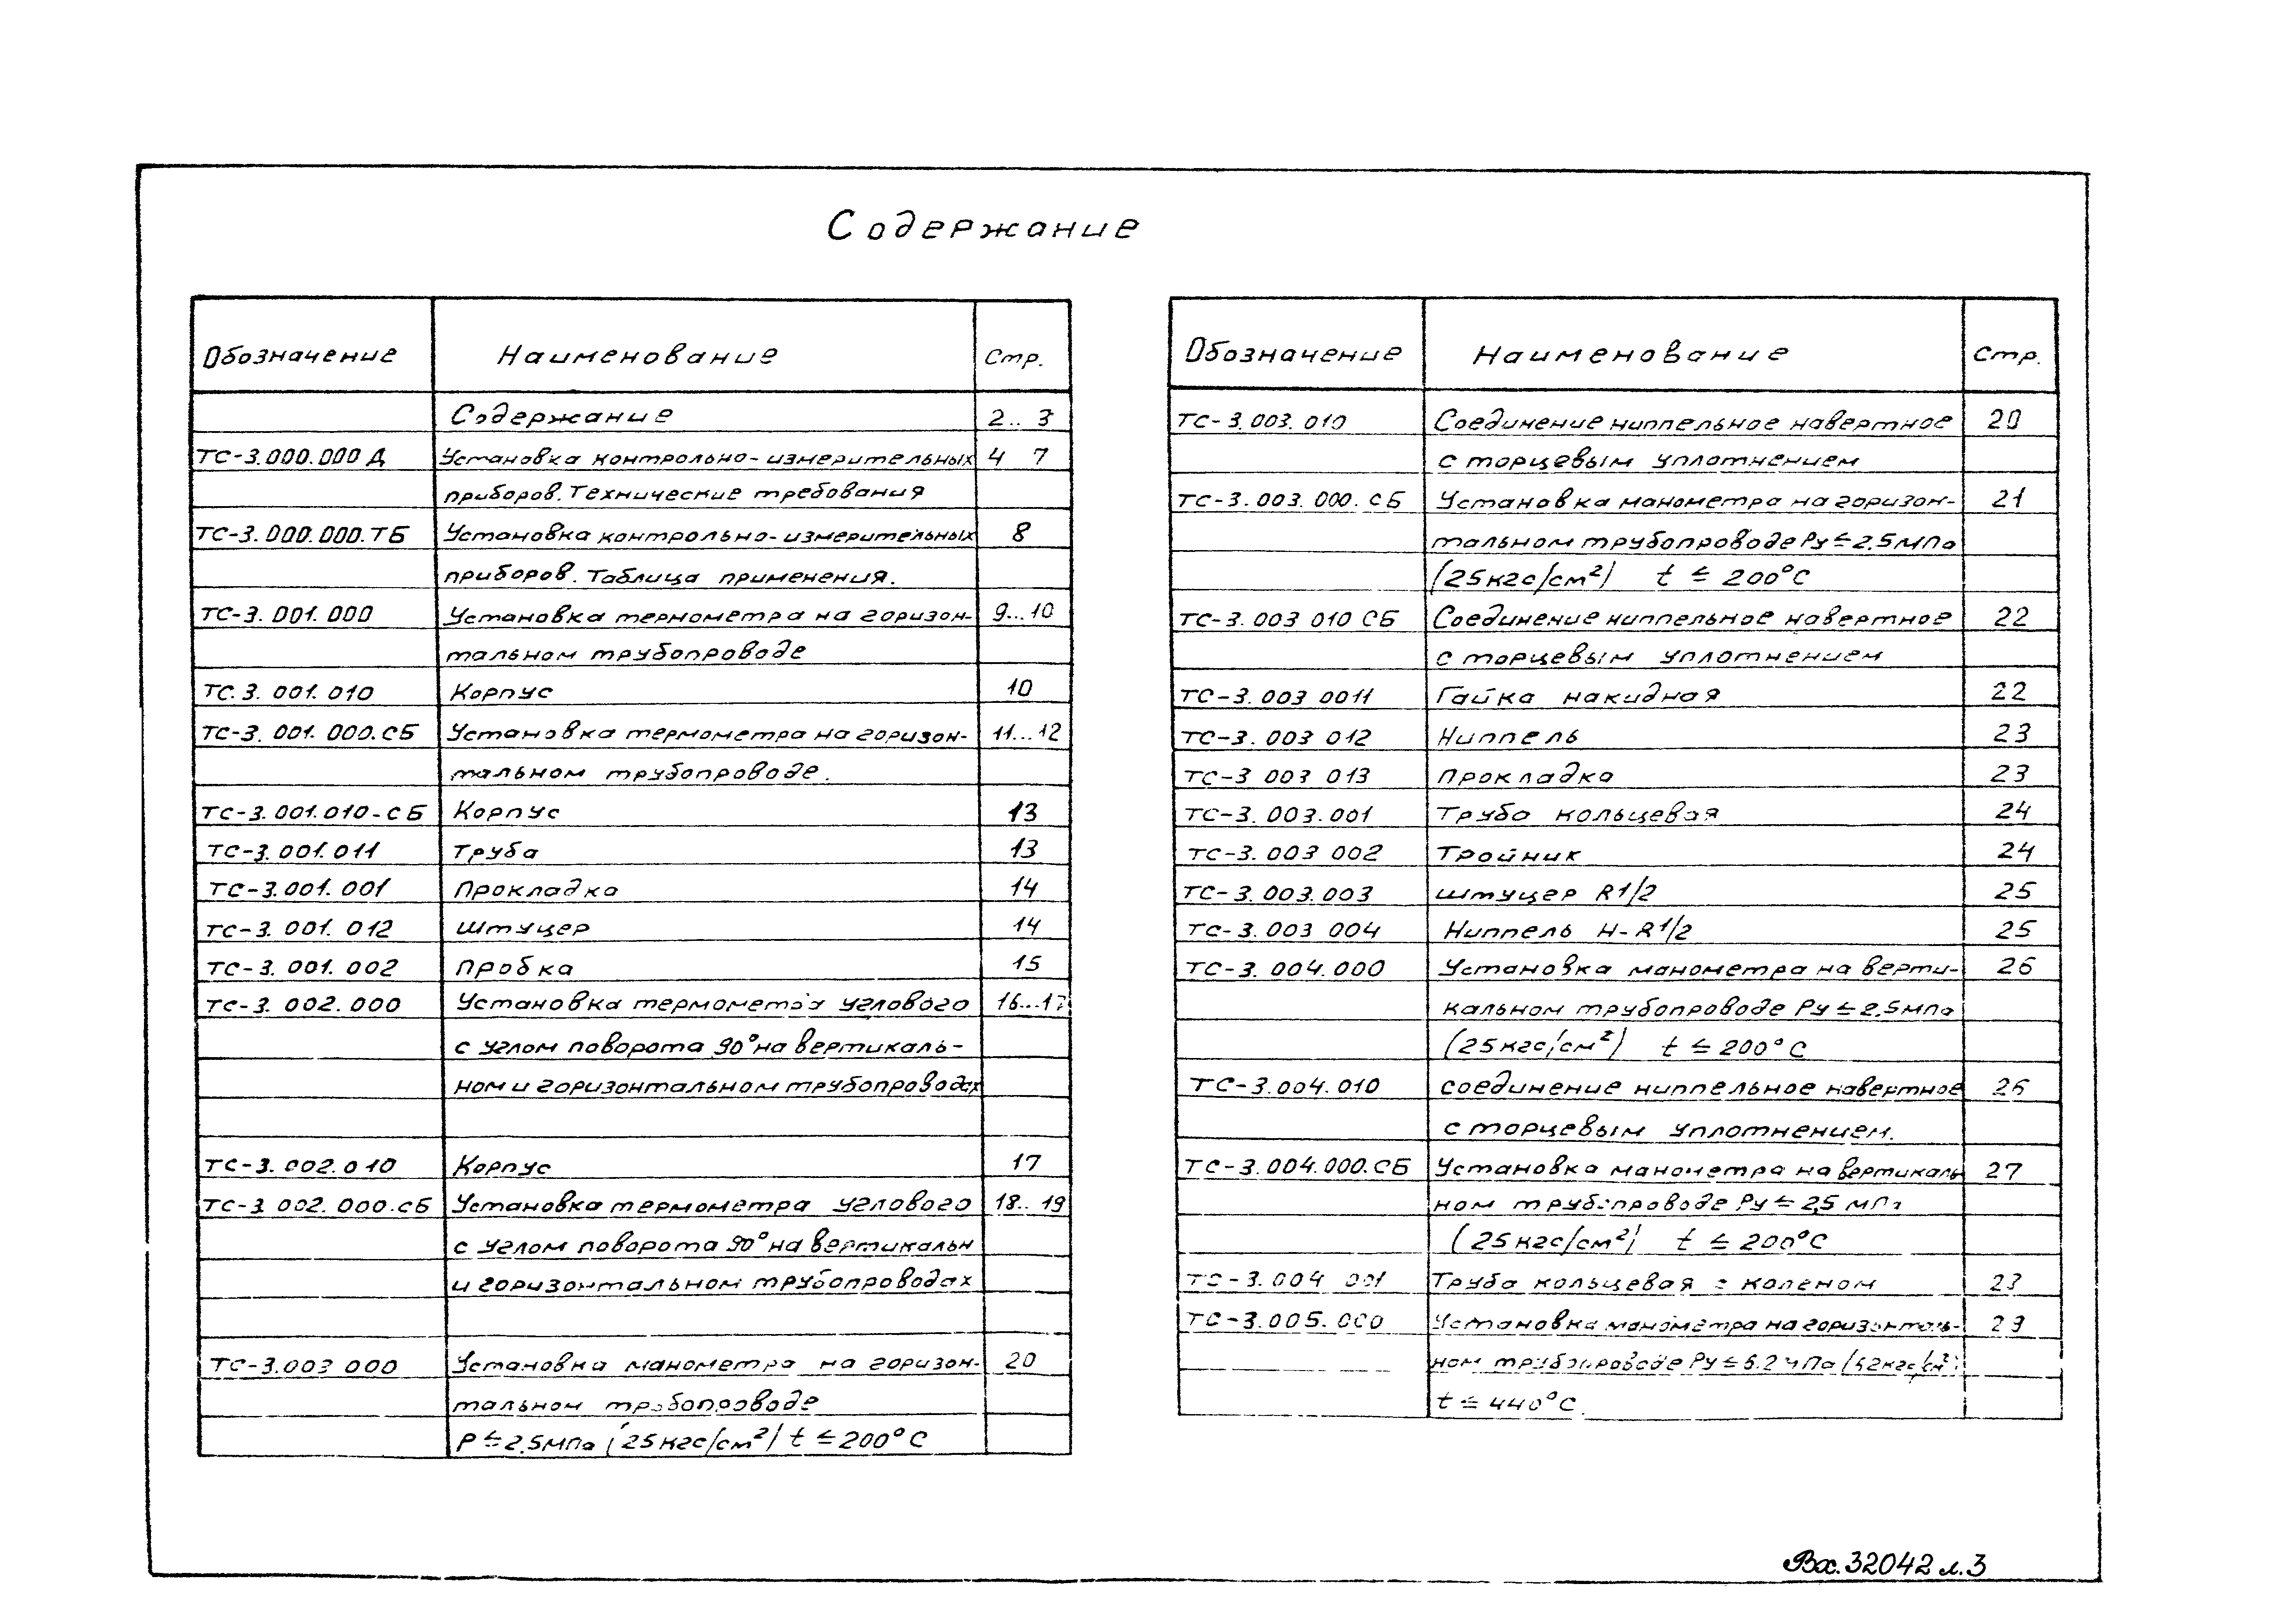 Содержание
Обозначение Наименование Стр.
Содержание 2.. 3
ТС-3.000.000 Д Установка контрольно-измерительных 4 7
приборов. Технические требования
ТС-3.000.000.ТБ Установка контрольно-измерительных 8
приборов. Таблица применения.
ТС-3.001.000 Установка термометра на горизон- 9...10
тальном трубопроводе
ТС.3.001.010 Корпус 10
ТС-3.001.000.СБ Установка термометра на горизон- 11...12
тальном трубопроводе.
ТС-3.001.010-СБ Корпус 13
ТС-3.001.011 Труба 13
ТС-3.001.001 Прокладка 14
ТС-3.001.012 Штуцер 14
ТС-3.001.002 Пробка 15
ТС-3.002.000 Установка термометра углового 16...17
с углом поворота 90° на вертикаль-
ном и горизонтальном трубопроводах
ТС-3.002.010 Корпус 17
ТС-3.002.000.СБ Установка термометра углового 18..19
с углом поворота 90° на вертикальн
и горизонтальном трубопроводах
ТС-3.003 000 Установка манометра на горизон- 20
тальном трубопроводе
Р ≤ 2.5 МПа (25 кгс/см²) t ≤ 200°С
Обозначение Наименование Стр.
ТС-3.003.010 Соединение ниппельное навертное 20
с торцевым уплотнением
ТС-3.003.000.СБ Установка манометра на горизон- 21
тальном трубопроводе Ру ≤ 2.5 МПа
(25 кгс/см²) t ≤ 200°С
ТС-3.003 010 СБ Соединение ниппельное навертное 22
с торцевым уплотнением
ТС-3.003 0011 Гайка накидная 22
ТС-3.003 012 Ниппель 23
ТС-3 003 013 Прокладка 23
ТС-3.003.001 Труба кольцевая 24
ТС-3.003 002 Тройник 24
ТС-3.003.003 Штуцер R1/2 25
ТС-3.003 004 Ниппель Н-R1/2 25
ТС-3.004.000 Установка манометра на верти- 26
кальном трубопроводе Ру ≤ 2.5 МПа
(25 кгс/см²) t ≤ 200°С
ТС-3.004.010 соединение ниппельное навертное 26
с торцевым уплотнением.
ТС-3.004.000.СБ Установка манометра на вертикаль 27
ном трубопроводе Ру ≤ 2,5 МПа
(25 кгс/см²) t ≤ 200°С
ТС-3.004 001 Труба кольцевая с коленом
ТС-3.005.000 Установка манометра на горизонталь-
ном трубопроводе Ру ≤
t ≤ 440°С.
Вх. 32042 л.3